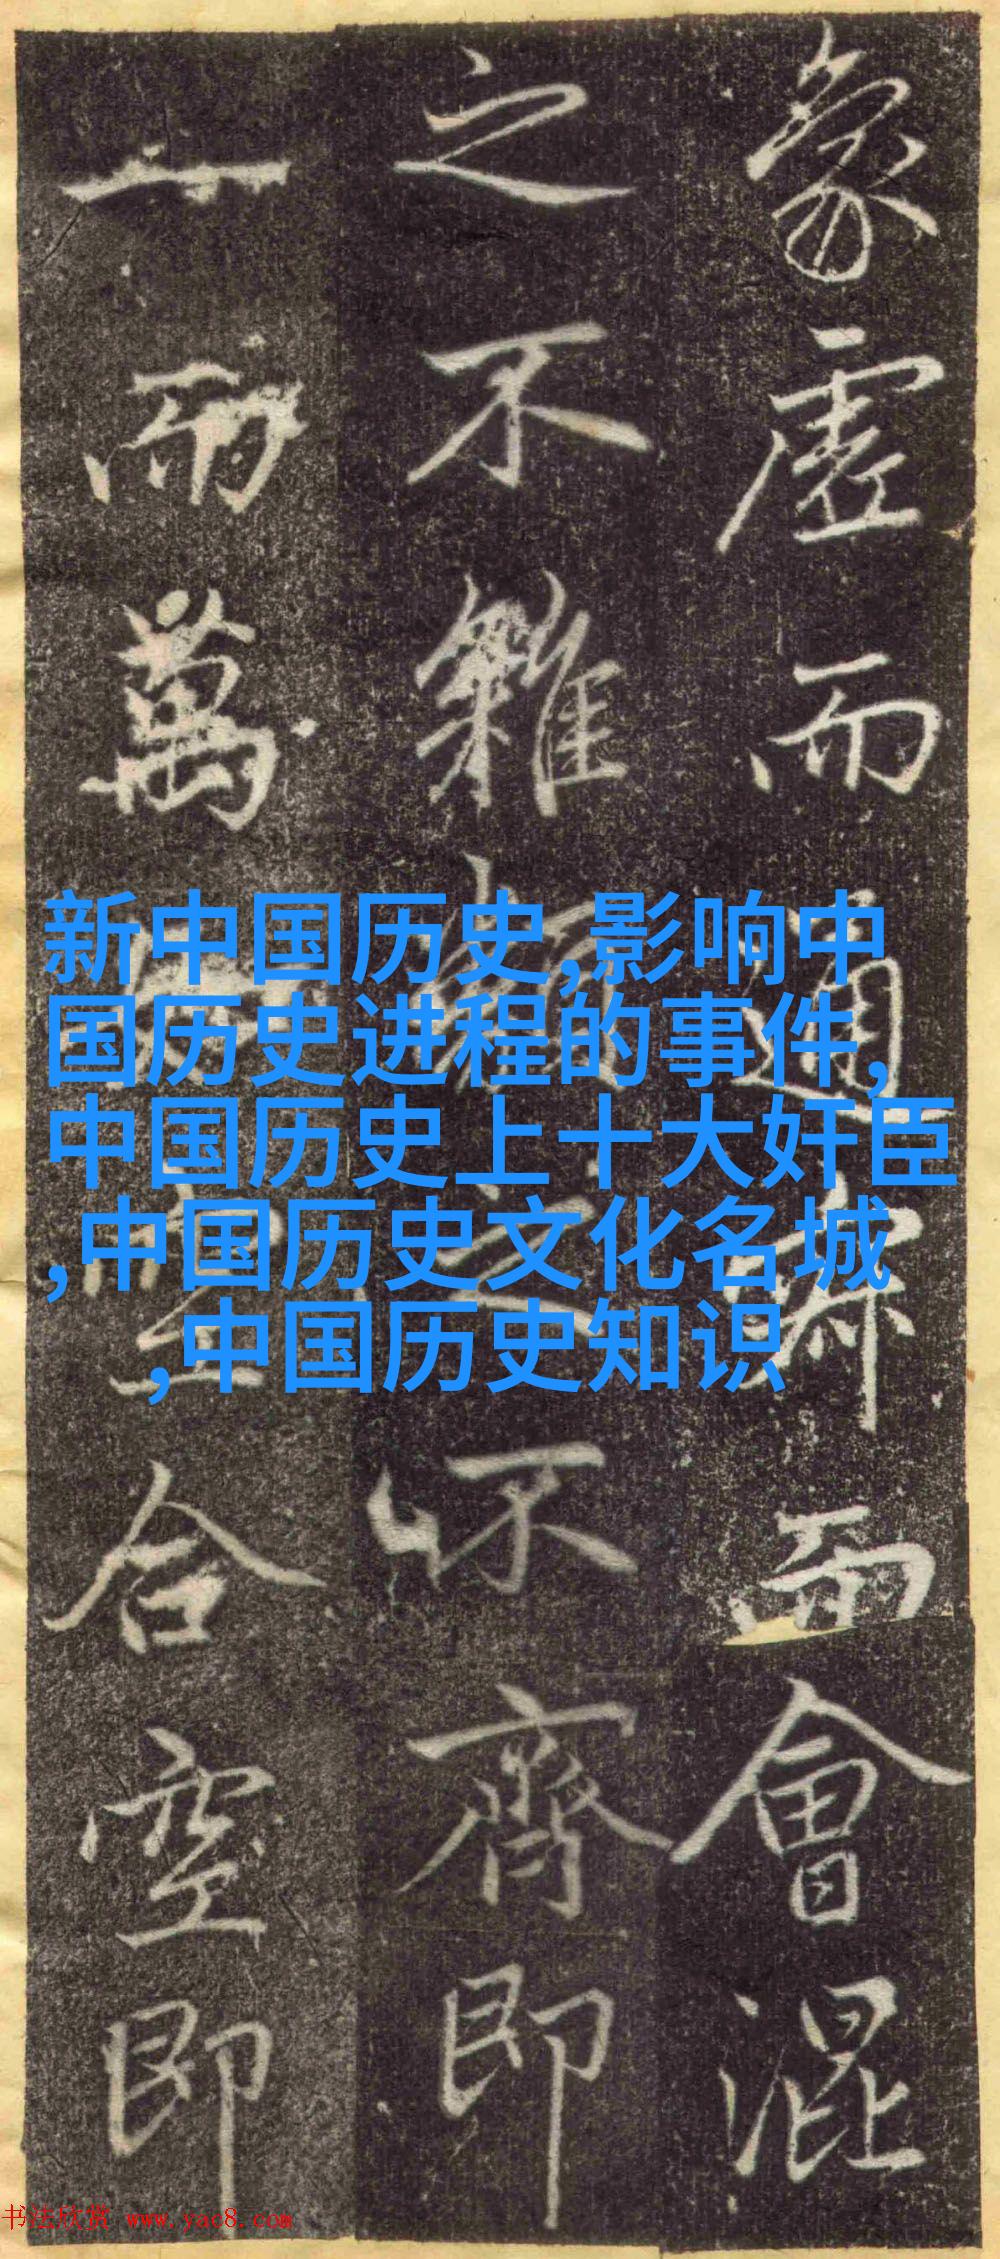 象虛而通寂而會混
之不雜類之不齊即
一而萬
合空即
新中国历史,影响中
国历史进程的事件,
中国历史上十大奸臣
,中国历史文化名城
,中国历史知识
书法欣赏 www.yac8.com